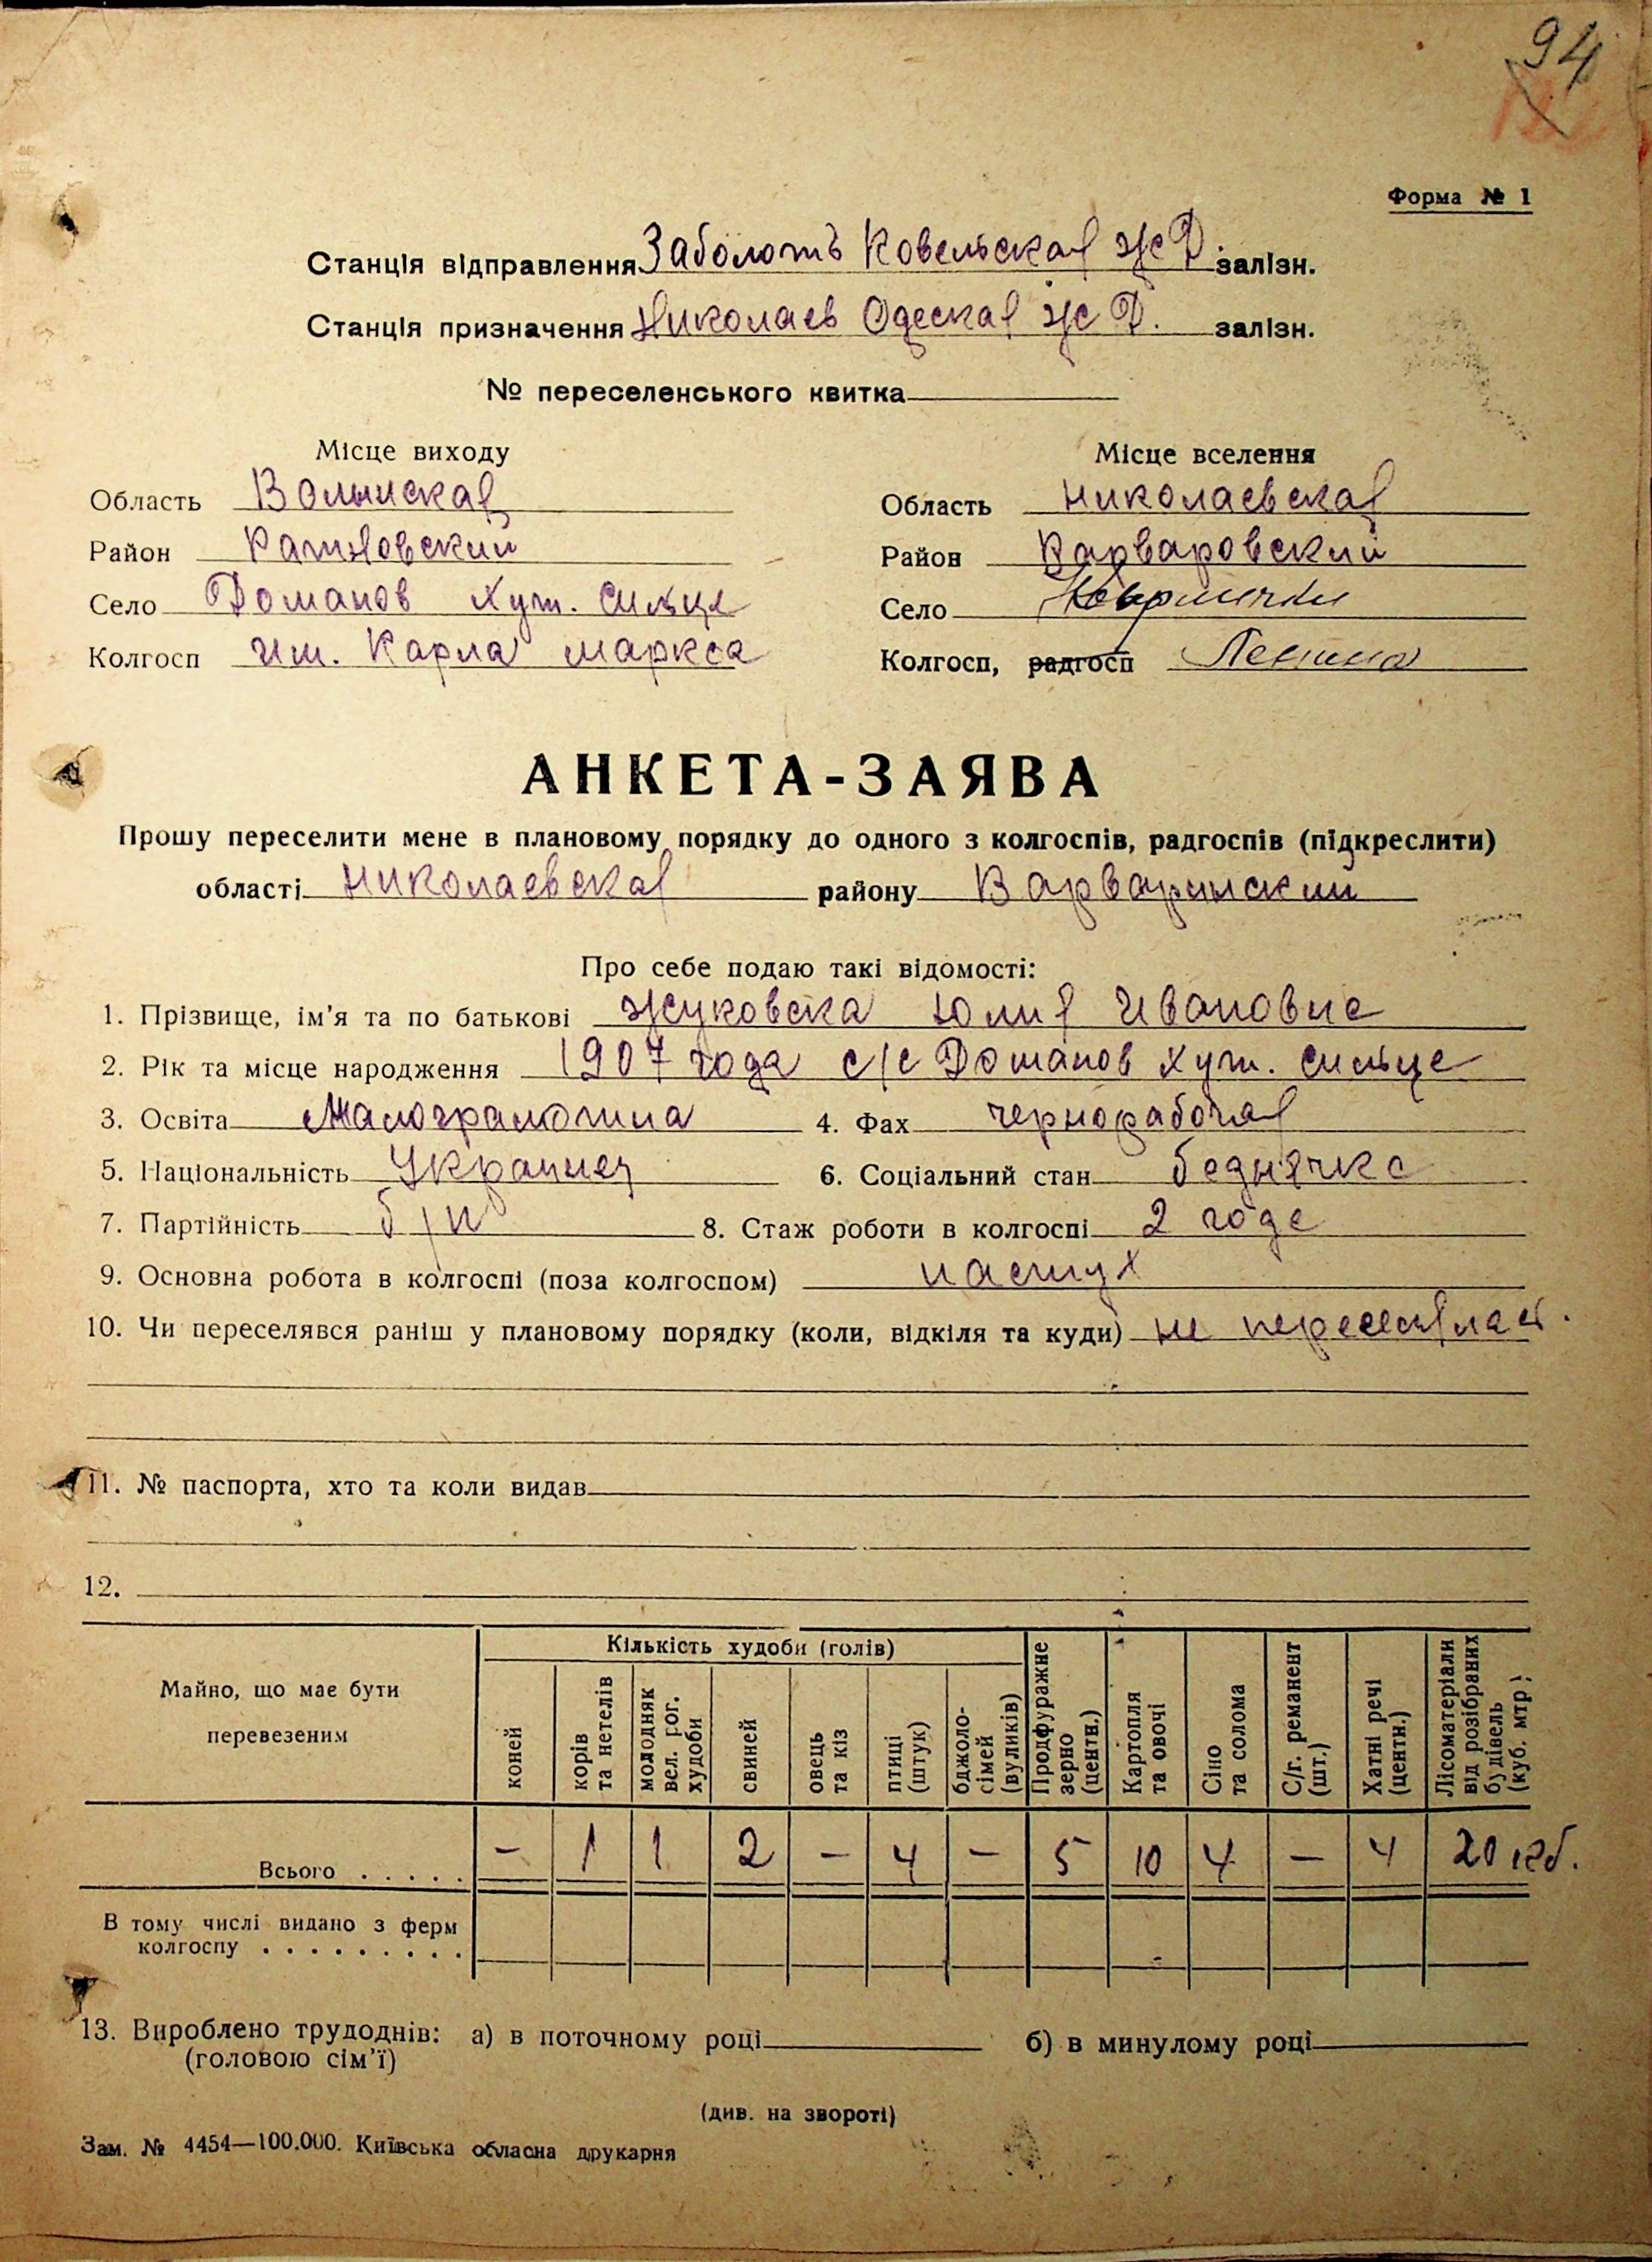 94
Форма № 1
Станція відправлення Заболоть Ковельская ж Д. залізн.
Станція призначення Николаев Одеская ж Д. залізн.
№ переселенського квитка
Місце виходу Місце вселення
Область Волынская Область Николаевская
Район Ратновский Район Варваровский
Село Доманов Хут. Сильце Село
Колгосп Им. Карла Маркса Колгосп, радгосп Ленина
АНКЕТА-ЗАЯВА
Прошу переселити мене в плановому порядку до одного з колгоспів, радгоспів (підкреслити)
області Николаевская району Варваринский
Про себе подаю такі відомості:
1. Прізвище, ім’я та по батькові Жуковска Юлия Ивановна
2. Рік та місце народження 1907 года с/с Доманов Хут. Сильце
3. Освіта Малограмотна 4. Фах чернорабочая
5. Національність 6. Соціальний стан беднячка
7. Партійність б/п 8. Стаж роботи в колгоспі 2 года
9. Основна робота в колгоспі (поза колгоспом) пастух
10. Чи переселявся раніш у плановому порядку (коли, відкіля та куди) не переселялась.
11. № паспорта, хто та коли видав
12.
Майно, що має бути перевезеним
Кількість худоби (голів)
коней
корів та нетелів
молодняк вел. рог. худоби
свиней
овець та кіз
птиці (штук)
бджоло-сімей (вуликів)
Продфуражне зерно (центн.)
Картопля та овочі
Сіно та солома
С/г. реманент (шт.)
Хатні речі (центн.)
Лісоматеріали від розібраних будівель (куб. мтр)
Всього . . . . . – 1 1 2 – 4 – 5 10 4 – 4 20 кб.
В тому числі видано з ферм
колгоспу . . . . . . . . .
13. Вироблено трудоднів: а) в поточному році б) в минулому році
(головою сім’ї)
(див. на звороті)
Зам. № 4454—100.000. Київська обласна друкарня